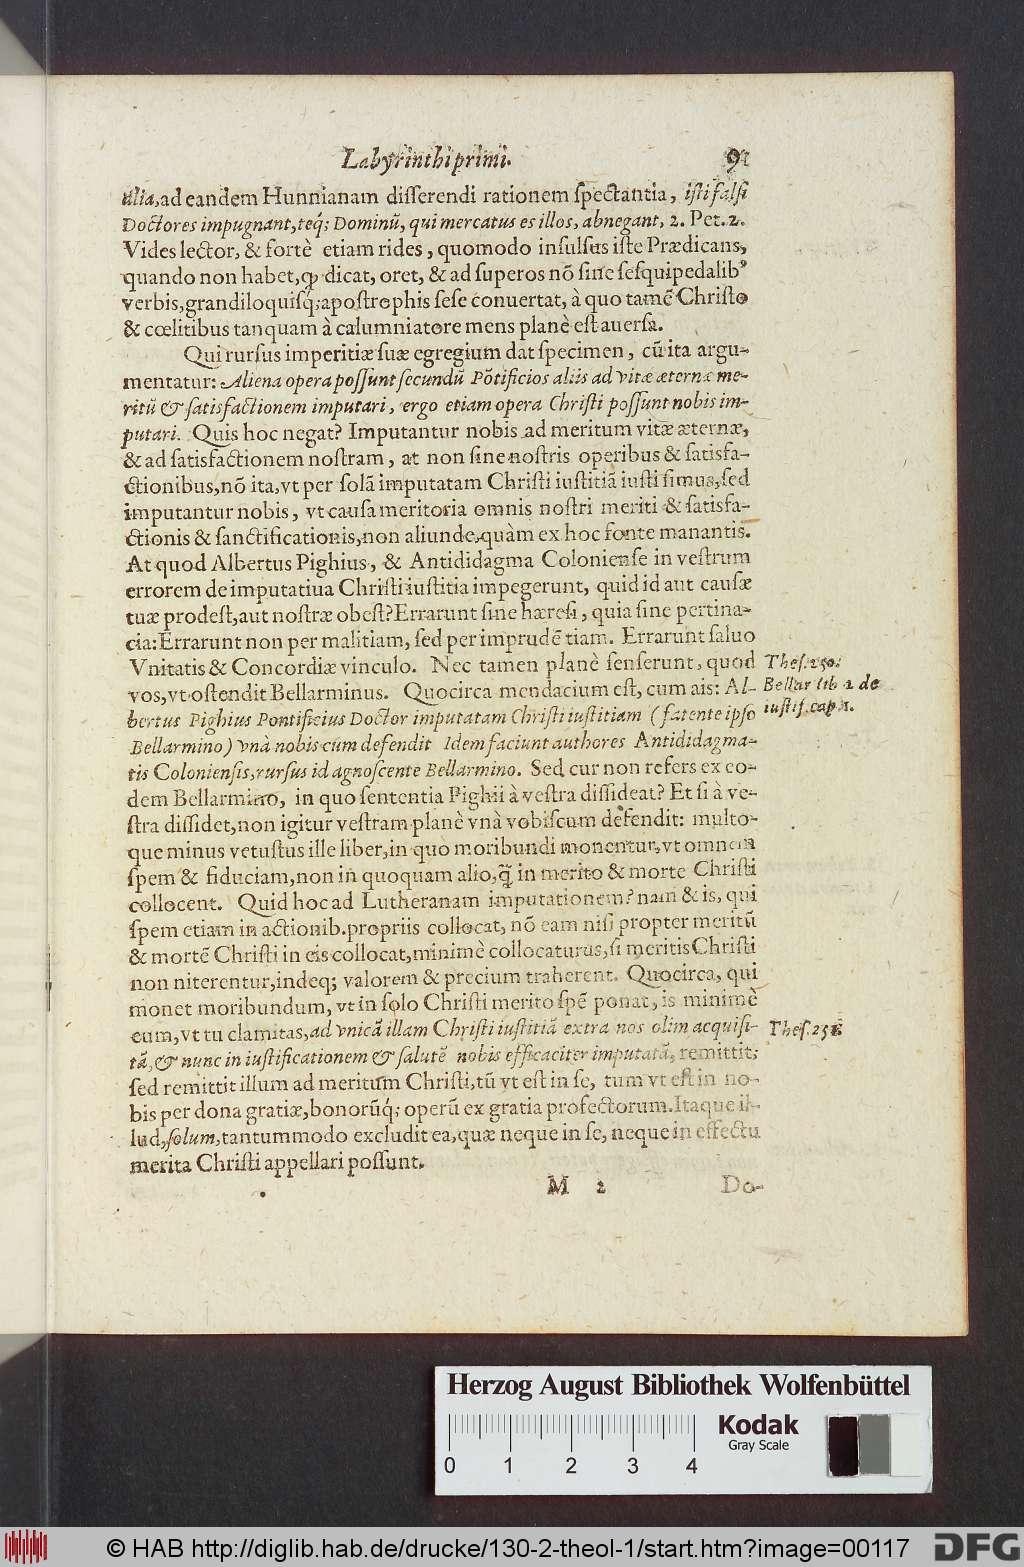 Labyrinthi primi. 91
alia, ad eandem Hunnianam disserendi rationem spectantia, isti falsi
Doctores impugnant, teq́; Dominũ, qui mercatus es illos, abnegant, 2. Pet. 2.
Vides lector, & fortè etiam rides, quomodo insulsus iste Prædicans,
quando non habet, ꝙ dicat, oret, & ad superos nõ sine sesquipedalibꝰ
verbis, grandiloquisq́; apostrophis sese conuertat, à quo tamẽ Christo
& cœlitibus tanquam à calumniatore mens planè est auersa.
Qui rursus imperitiæ suæ egregium dat specimen, cũ ita argu-
mentatur: Aliena opera possunt secundũ Põtificios aliis ad vitæ æternæ me-
ritũ & satisfactionem imputari, ergo etiam opera Christi possunt nobis im-
putari. Quis hoc negat? Imputantur nobis ad meritum vitæ æternæ,
& ad satisfactionem nostram, at non sine nostris operibus & satisfa-
ctionibus, nõ ita, vt per solã imputatam Christi iustitiã iusti simus, sed
imputantur nobis, vt causa meritoria omnis nostri meriti & satisfa-
ctionis & sanctificationis, non aliunde, quàm ex hoc fonte manantis.
At quod Albertus Pighius, & Antididagma Coloniense in vestrum
errorem de imputatiua Christi iustitia impegerunt, quid id aut causæ
tuæ prodest, aut nostræ obest? Errarunt sine hæresi, quia sine pertina-
cia: Errarunt non per malitiam, sed per imprudẽtiam. Errarunt saluo
Vnitatis & Concordiæ vinculo. Nec tamen planè senserunt, quod
vos, vt ostendit Bellarminus. Quocirca mendacium est, cum ais: Al-
bertus Pighius Pontificius Doctor imputatam Christi iustitiam (fatente ipso
Bellarmino) vnà nobiscum defendit Idem faciunt authores Antididagma-
tis Coloniensis, rursus id agnoscente Bellarmino. Sed cur non refers ex eo-
dem Bellarmino, in quo sententia Pighii à vestra dissideat? Et si à ve-
stra dissidet, non igitur vestram planè vnà vobiscum defendit: multo-
que minus vetustus ille liber, in quo moribundi monentur, vt omnem
spem & fiduciam, non in quoquam alio, q̃ in merito & morte Christi
collocent. Quid hoc ad Lutheranam imputationem? nam & is, qui
spem etiam in actionib. propriis collocat, nõ eam nisi propter meritũ
& mortẽ Christi in eis collocat, minimè collocaturus, si meritis Christi
non niterentur, indeq; valorem & precium traherent. Quocirca, qui
monet moribundum, vt in solo Christi merito spẽ ponat, is minimè
eum, vt tu clamitas, ad vnicã illam Christi iustitiã extra nos olim acquisi-
tã, & nunc in iustificationem & salutẽ nobis efficaciter imputatã, remittit;
sed remittit illum ad meritum Christi, tũ vt est in se, tum vt est in no-
bis per dona gratiæ, bonorũq́; operũ ex gratia profectorum. Itaque il-
lud, solum, tantummodo excludit ea, quæ neque in se, neque in effectu
merita Christi appellari possunt.
M 2 Do-
Thes. 250.
Bellar lib 2 de
iustif. cap. 1.
Thes. 251
Herzog August Bibliothek Wolfenbüttel
0 1 2 3 4
Kodak
Gray Scale
© HAB http://diglib.hab.de/drucke/130-2-theol-1/start.htm?image=00117
DFG